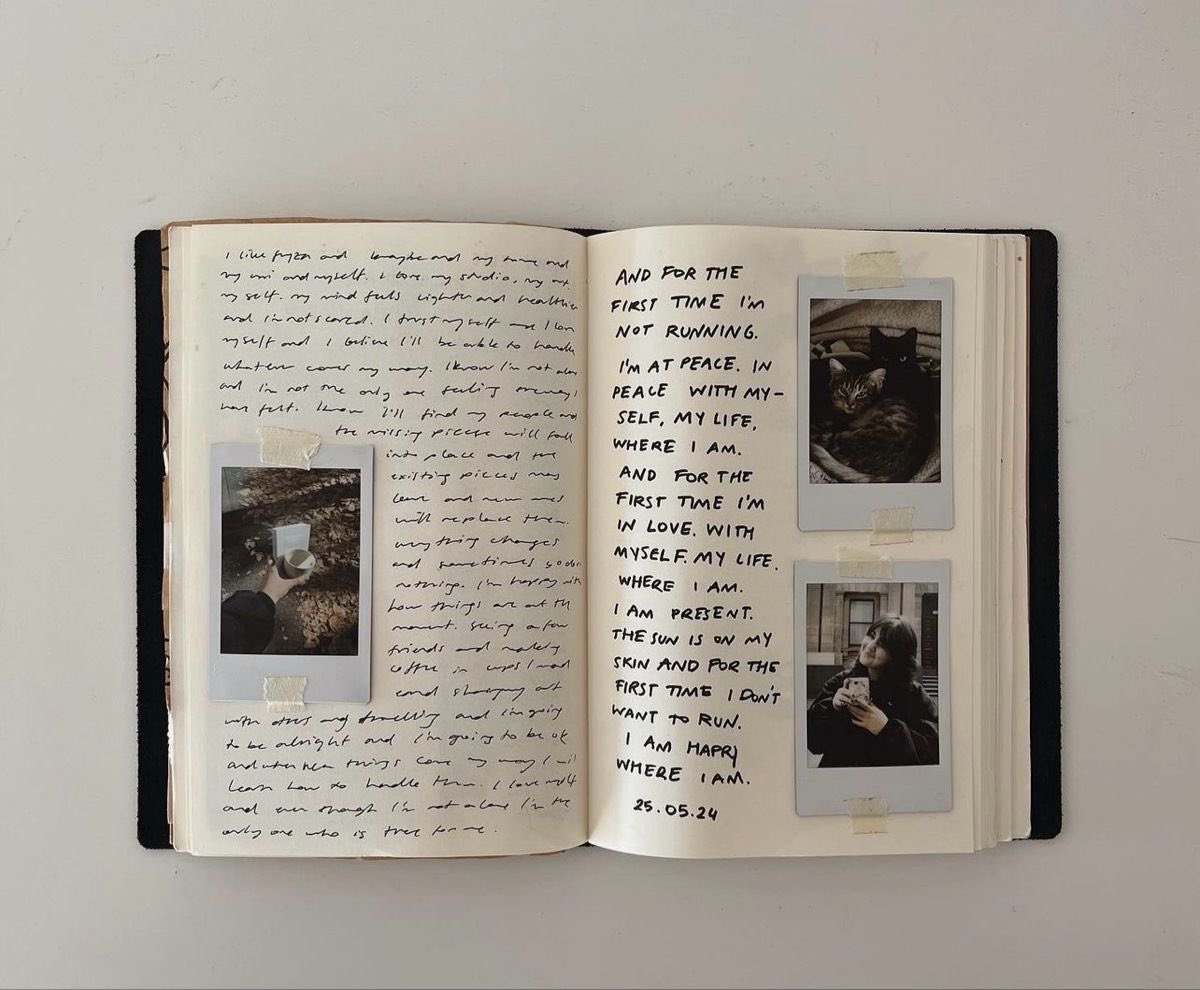 I like and and my name and
my and myself. I love my studio, my art,
my self. my mind feels lighter and healthier
and I'm not scared. I trust myself and I love
myself and I believe I'll be able to handle
whatever comes my way. I know I'm not alone
and I'm not the only one feeling
have felt. I know I'll find my people and
the missing pieces will fall
into place and the
existing pieces may
leave and new ones
will replace them.
everything changes
and sometimes so does
nothing. I'm happy with
how things are at the
moment. seeing a few
friends and making
coffee in cups I made
and sleeping
with and travelling and I'm going
to be alright and I'm going to be ok
and when new things come my way I will
learn how to handle them. I love myself
and even though I'm not alone I'm the
only one who is there for me.
AND FOR THE
FIRST TIME I'M
NOT RUNNING.
I'M AT PEACE. IN
PEACE WITH MY-
SELF, MY LIFE,
WHERE I AM.
AND FOR THE
FIRST TIME I'M
IN LOVE. WITH
MYSELF. MY LIFE.
WHERE I AM.
I AM PRESENT.
THE SUN IS ON MY
SKIN AND FOR THE
FIRST TIME I DON'T
WANT TO RUN.
I AM HAPPY
WHERE I AM.
25.05.24